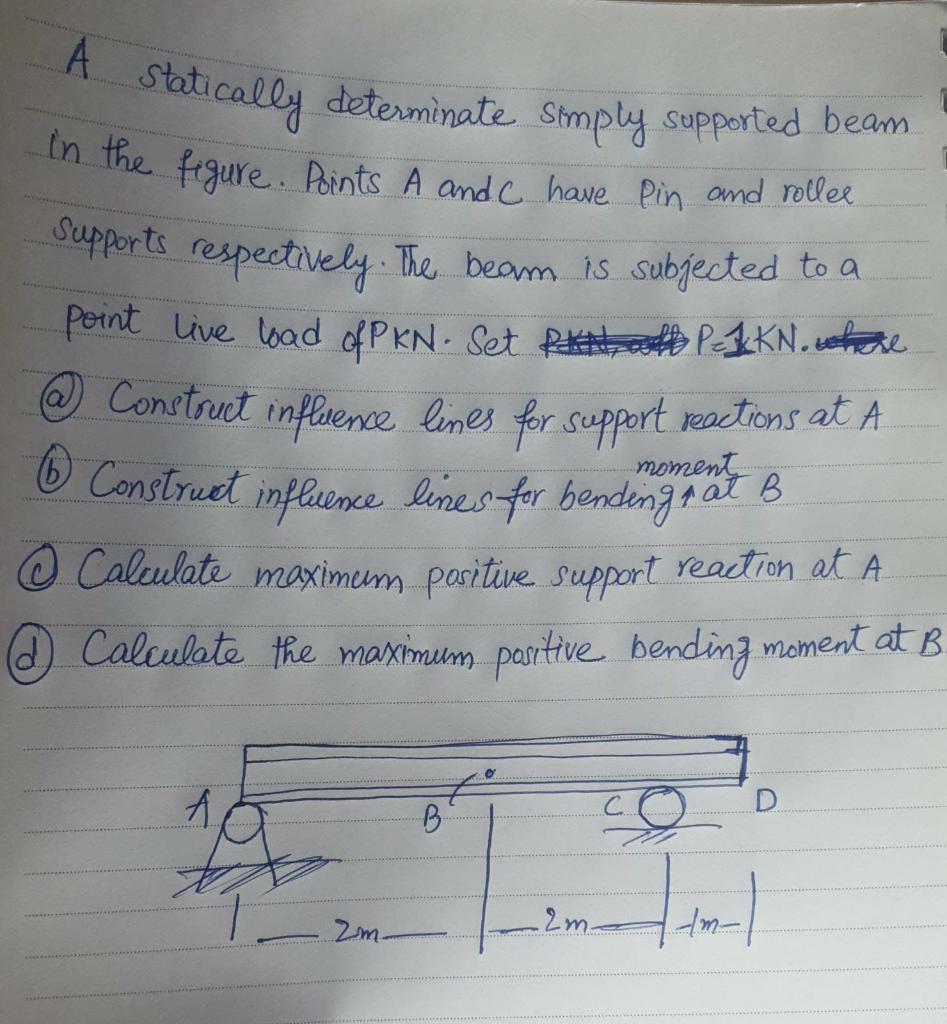 A statically determinate simply supported beam
in the figure. Points A and C have Pin and roller
supports respectively. The beam is subjected to a
point live load of P KN. Set P=1KN.
ⓐ Construct influence lines for support reactions at A
ⓑ Construct influence lines for bending moment at B
ⓒ Calculate maximum positive support reaction at A
ⓓ Calculate the maximum positive bending moment at B
A B C D
2m 2m 1m